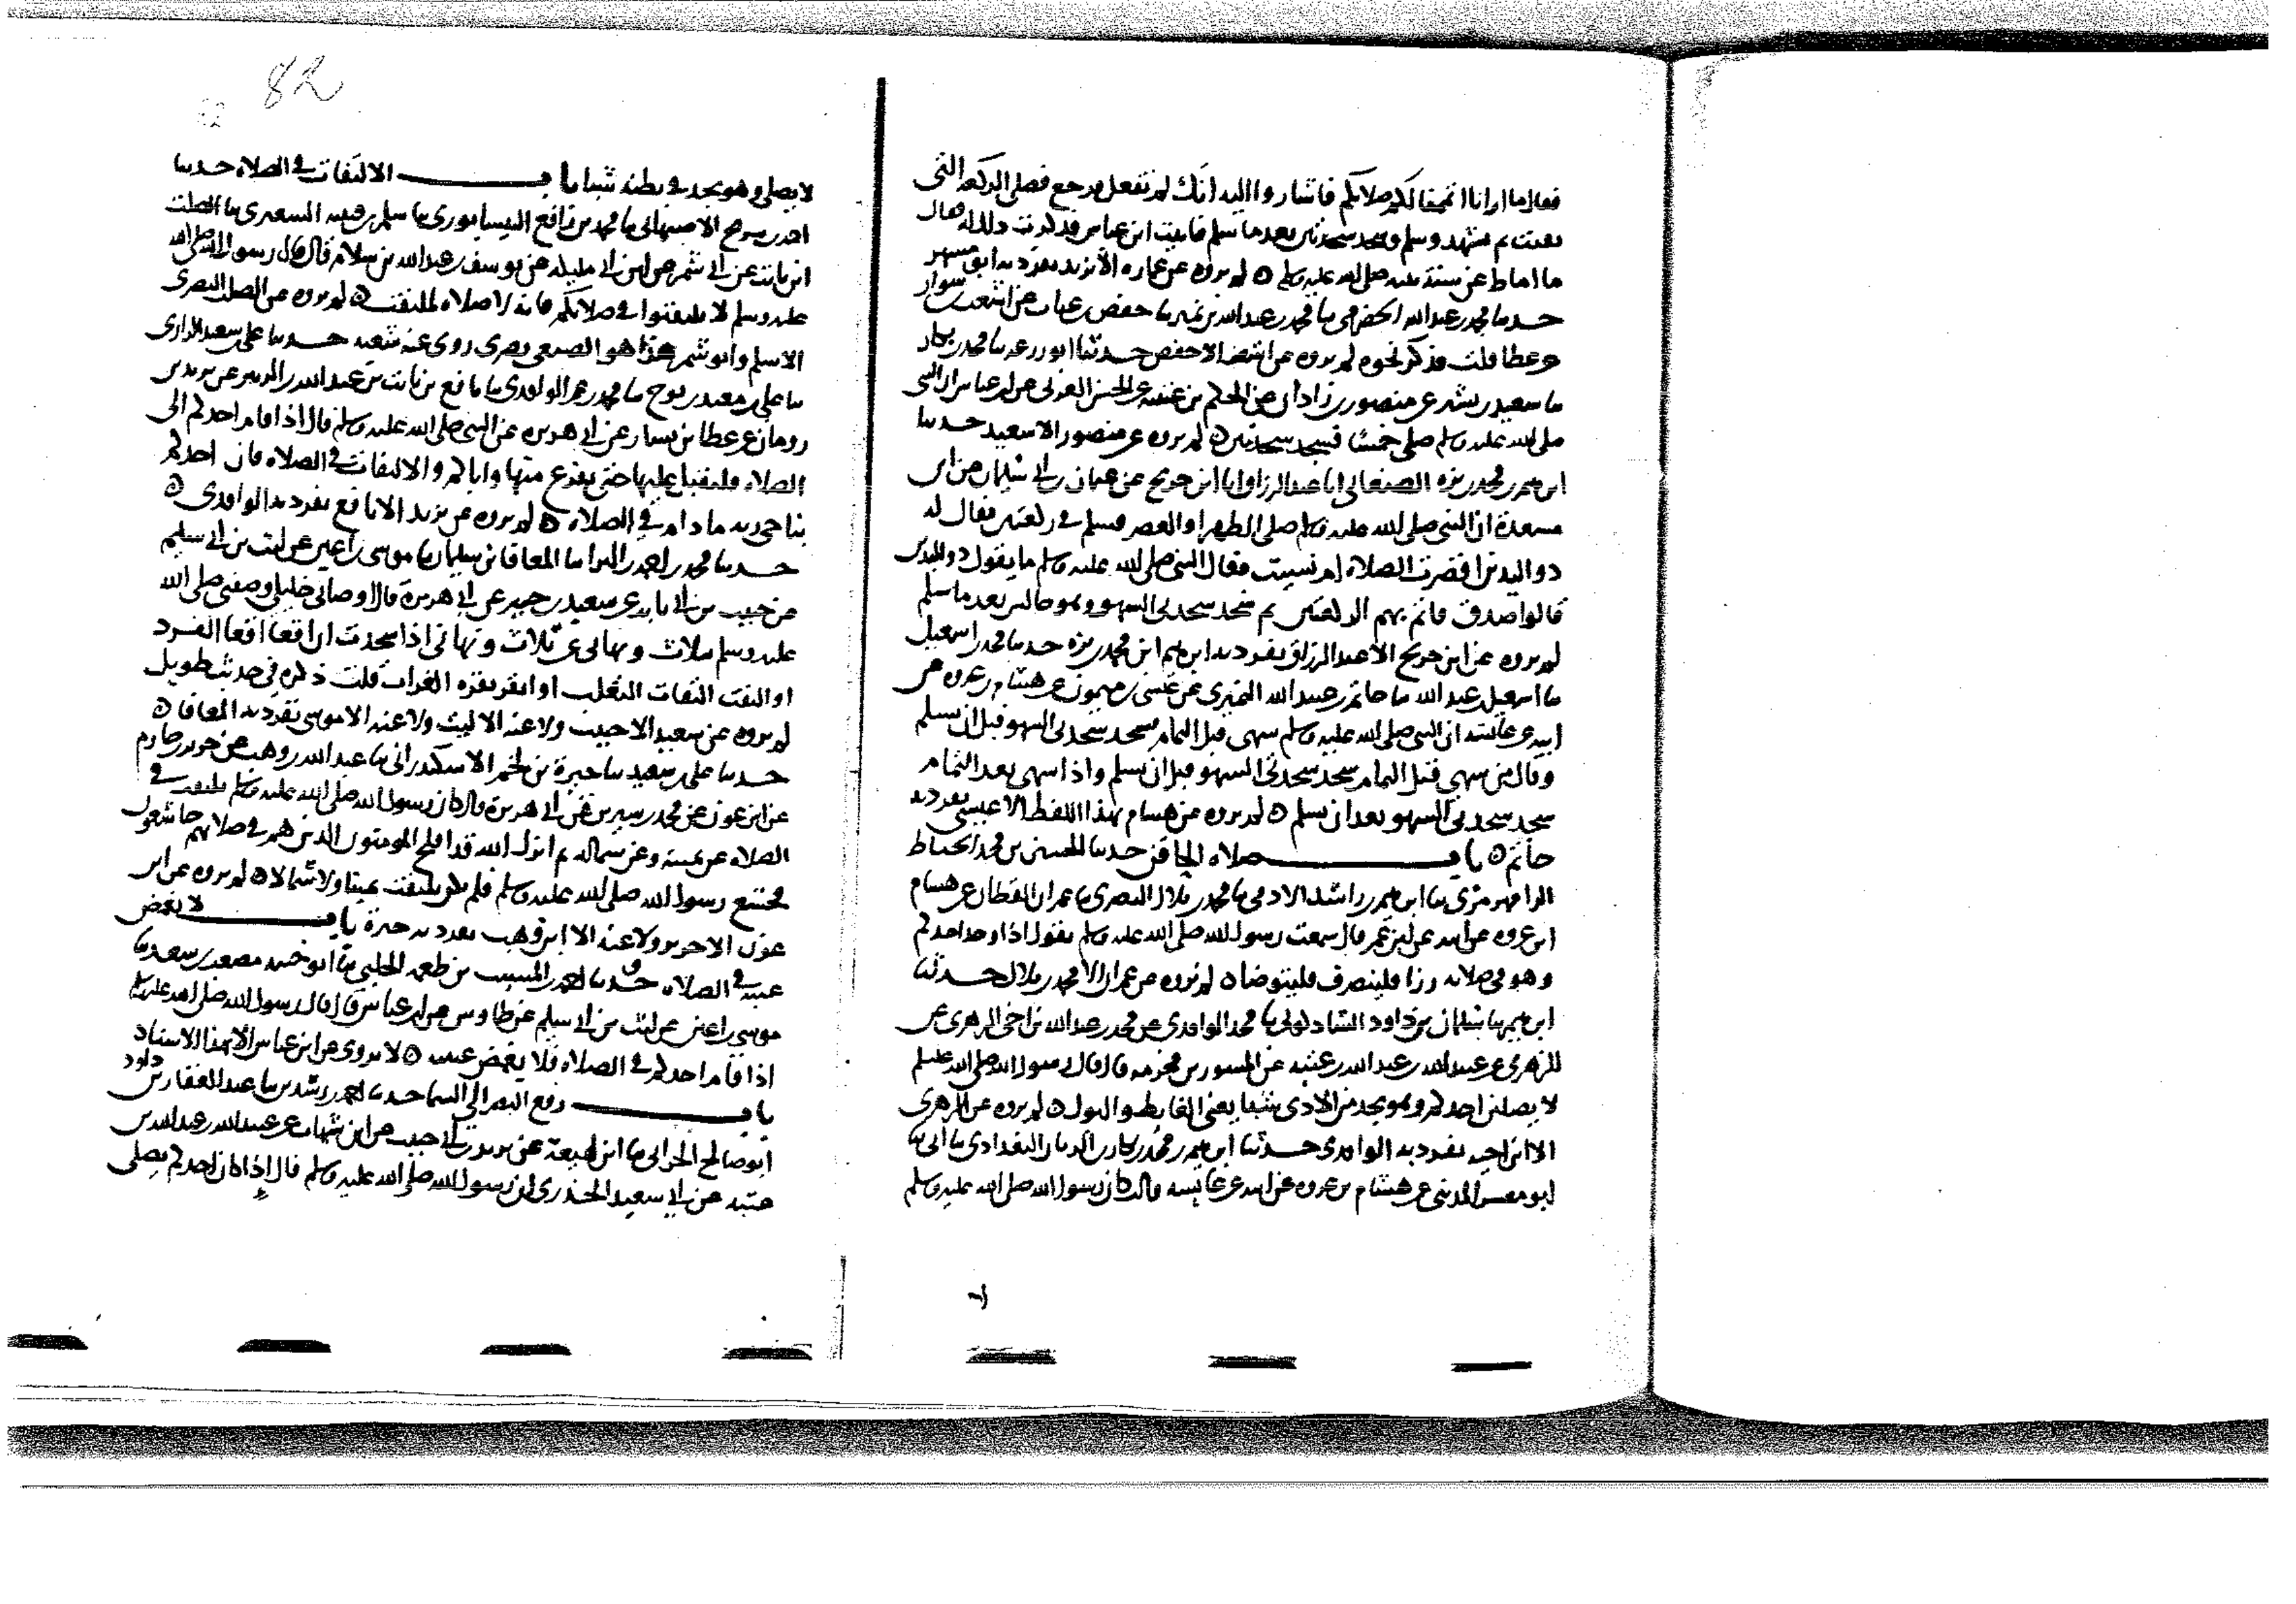 فقال ما ارانا اتممنا لكم صلاتكم فاشاروا اليه انك لم تفعل فرجع فصلى الركعه التى
بقيت ثم تشهد وسلم وسجد سجدتين بعدما سلم فاتيت ابن عباس فذكرت ذلك له فقال
ما اماط عن سنة نبيه صلى الله عليه وسلم ○ لم يروه عن عماره الا يزيد تفرد به ابو مسهر
حدثنا محمد بن عبد الله الحضرمى ثنا محمد بن عبد الله بن نمير ثنا حفص بن غياث عن اشعث بن سوار
عن عطا قلت فذكر نحوه لم يروه عن اشعث الا حفص حدثنا ابو زرعه ثنا محمد بن بكار
ثنا سعيد بن بشير عن منصور بن زاذان عن الحكم بن عتيبه عن الحسن العرنى عن ابن عباس ان النبى
صلى الله عليه وسلم صلى خمسا فسجد سجدتين ○ لم يروه عن منصور الا سعيد حدثنا
ابرهيم بن محمد بن بره الصنعانى انا عبد الرزاق انا ابن جريج عن عثمان بن ابى سليمان عن ابن
مسعدة ان النبى صلى الله عليه وسلم صلى الظهر او العصر فسلم فى ركعتين فقال له
ذو اليدين اقصرت الصلاه ام نسيت فقال النبى صلى الله عليه وسلم ما يقول ذو اليدين
قالوا صدق فاتم بهم الركعتين ثم سجد سجدتى السهو وهو جالس بعد ما سلم
لم يروه عن ابن جريج الا عبد الرزاق تفرد به ابرهيم ابن محمد بن بره حدثنا محمد بن اسمعيل
ثنا اسمعيل بن عبد الله ثنا حاتم بن عبيد الله النميرى عن عيسى بن ميمون عن هشام بن عروه عن
ابيه عن عائشه ان النبى صلى الله عليه وسلم سهى قبل التمام فسجد سجدتى السهو قبل ان يسلم
وقال من سهى قبل التمام سجد سجدتى السهو قبل ان يسلم واذا سهى بعد التمام
سجد سجدتى السهو بعد ان يسلم ○ لم يروه عن هشام بهذا اللفظ الا عيسى تفرد به
حاتم ○ باب صلاه الحاقن حدثنا الحسين بن محمد الحناط
الرامهرمزى ثنا ابرهيم بن راشد الادمى ثنا محمد بن بلال البصرى ثنا عمران القطان عن هشام
ابن عروه عن ابيه عن ابن عمر قال سمعت رسول الله صلى الله عليه وسلم يقول اذا وجد احدكم
وهو فى صلاته رزا فلينصرف فليتوضا ○ لم يروه عن عمران الا محمد بن بلال حدثنا
ابرهيم ثنا سليمان بن داود الشاذكونى ثنا محمد الواقدى عن محمد بن عبد الله بن اخى الزهرى عن
الزهرى عن عبيد الله بن عبد الله بن عتبه عن المسور بن مخرمه قال قال رسول الله صلى الله عليه وسلم
لا يصلين احدكم وهو يجد من الاذى شيئا يعنى الغايط والبول ○ لم يروه عن الزهرى
الا ابن اخيه تفرد به الواقدى حدثنا ابرهيم بن محمد بن بكار بن الريان البغدادى ثنا ابى ثنا
ابو معشر المدنى عن هشام بن عروه عن ابيه عن عايشه قالت كان رسول الله صلى الله عليه وسلم
82
لا يصلى وهو يجد فى بطنه شيئا باب الالتفات فى الصلاه حدثنا
احمد بن سريج الاصبهانى ثنا محمد بن رافع النيسابورى ثنا سلم بن قتيبه الشعيرى ثنا الصلت
ابن ثابت عن ابى شمر عن ابن ابى مليكه عن يوسف بن عبد الله بن سلام قال قال رسول الله صلى الله
عليه وسلم لا تلتفتوا فى صلاتكم فانه لا صلاه لملتفت ○ لم يروه عن الصلت البصرى
الا سلم وابو شمر هذا هو الضبعى بصرى روى عنه شعبه حدثنا على بن سعيد الرازى
ثنا على بن معبد بن نوح ثنا محمد بن عمر الواقدى ثنا نافع بن ثابت بن عبد الله بن الزبير عن يزيد بن
رومان عن عطا بن يسار عن ابى هريره عن النبى صلى الله عليه وسلم قال اذا قام احدكم الى
الصلاه فليقبل عليها حتى يفرغ منها واياكم والالتفات فى الصلاه فان احدكم
يناجى ربه ما دام فى الصلاه ○ لم يروه عن يزيد الا نافع تفرد به الواقدى ○
حدثنا محمد بن احمد بن البرا ثنا المعافا بن سليمان ثنا موسى بن اعين عن ليث بن ابى سليم
عن حبيب بن ابى ثابت عن سعيد بن جبير عن ابى هريرة قال اوصانى خليلى وصفيى صلى الله
عليه وسلم بثلاث ونهانى عن ثلاث ونهانى اذا سجدت ان اقعا اقعا القرد
او التفت التفات الثعلب او انقر نقره الغراب قلت ذكره فى حديث طويل
لم يروه عن سعيد الا حبيب ولا عنه الا ليث ولا عنه الا موسى تفرد به المعافا ○
حدثنا على بن سعيد ثنا حبرة بن لخم الاسكندرانى ثنا عبد الله بن وهب عن جرير بن حازم
عن ابن عون عن محمد بن سيرين عن ابى هريرة قال كان رسول الله صلى الله عليه وسلم يلتفت فى
الصلاه عن يمينه وعن شماله ثم انزل الله قد افلح المومنون الذين هم فى صلاتهم خاشعون
فخشع رسول الله صلى الله عليه وسلم فلم يكن يلتفت يمينا ولا شمالا ○ لم يروه عن ابن
عون الا جرير ولا عنه الا ابن وهب تفرد به حبرة باب لا يغمض
عينيه فى الصلاه حدثنا احمد بن المسيب بن طعمه الحلبى ثنا ابو خيثمه مصعب بن سعيد ثنا
موسى بن اعين عن ليث بن ابى سليم عن طاوس عن ابن عباس قال قال رسول الله صلى الله عليه وسلم
اذا قام احدكم فى الصلاه فلا يغمض عينيه ○ لا يروى عن ابن عباس الا بهذا الاسناد
باب رفع البصر الى السما حدثنا احمد بن رشدين ثنا عبد الغفار بن داود
ابو صالح الحرانى ثنا ابن لهيعة عن يزيد بن ابى حبيب عن ابن شهاب عن عبيد الله بن عبد الله بن
عتبه عن ابى سعيد الخدرى ان رسول الله صلى الله عليه وسلم قال اذا كان احدكم يصلى